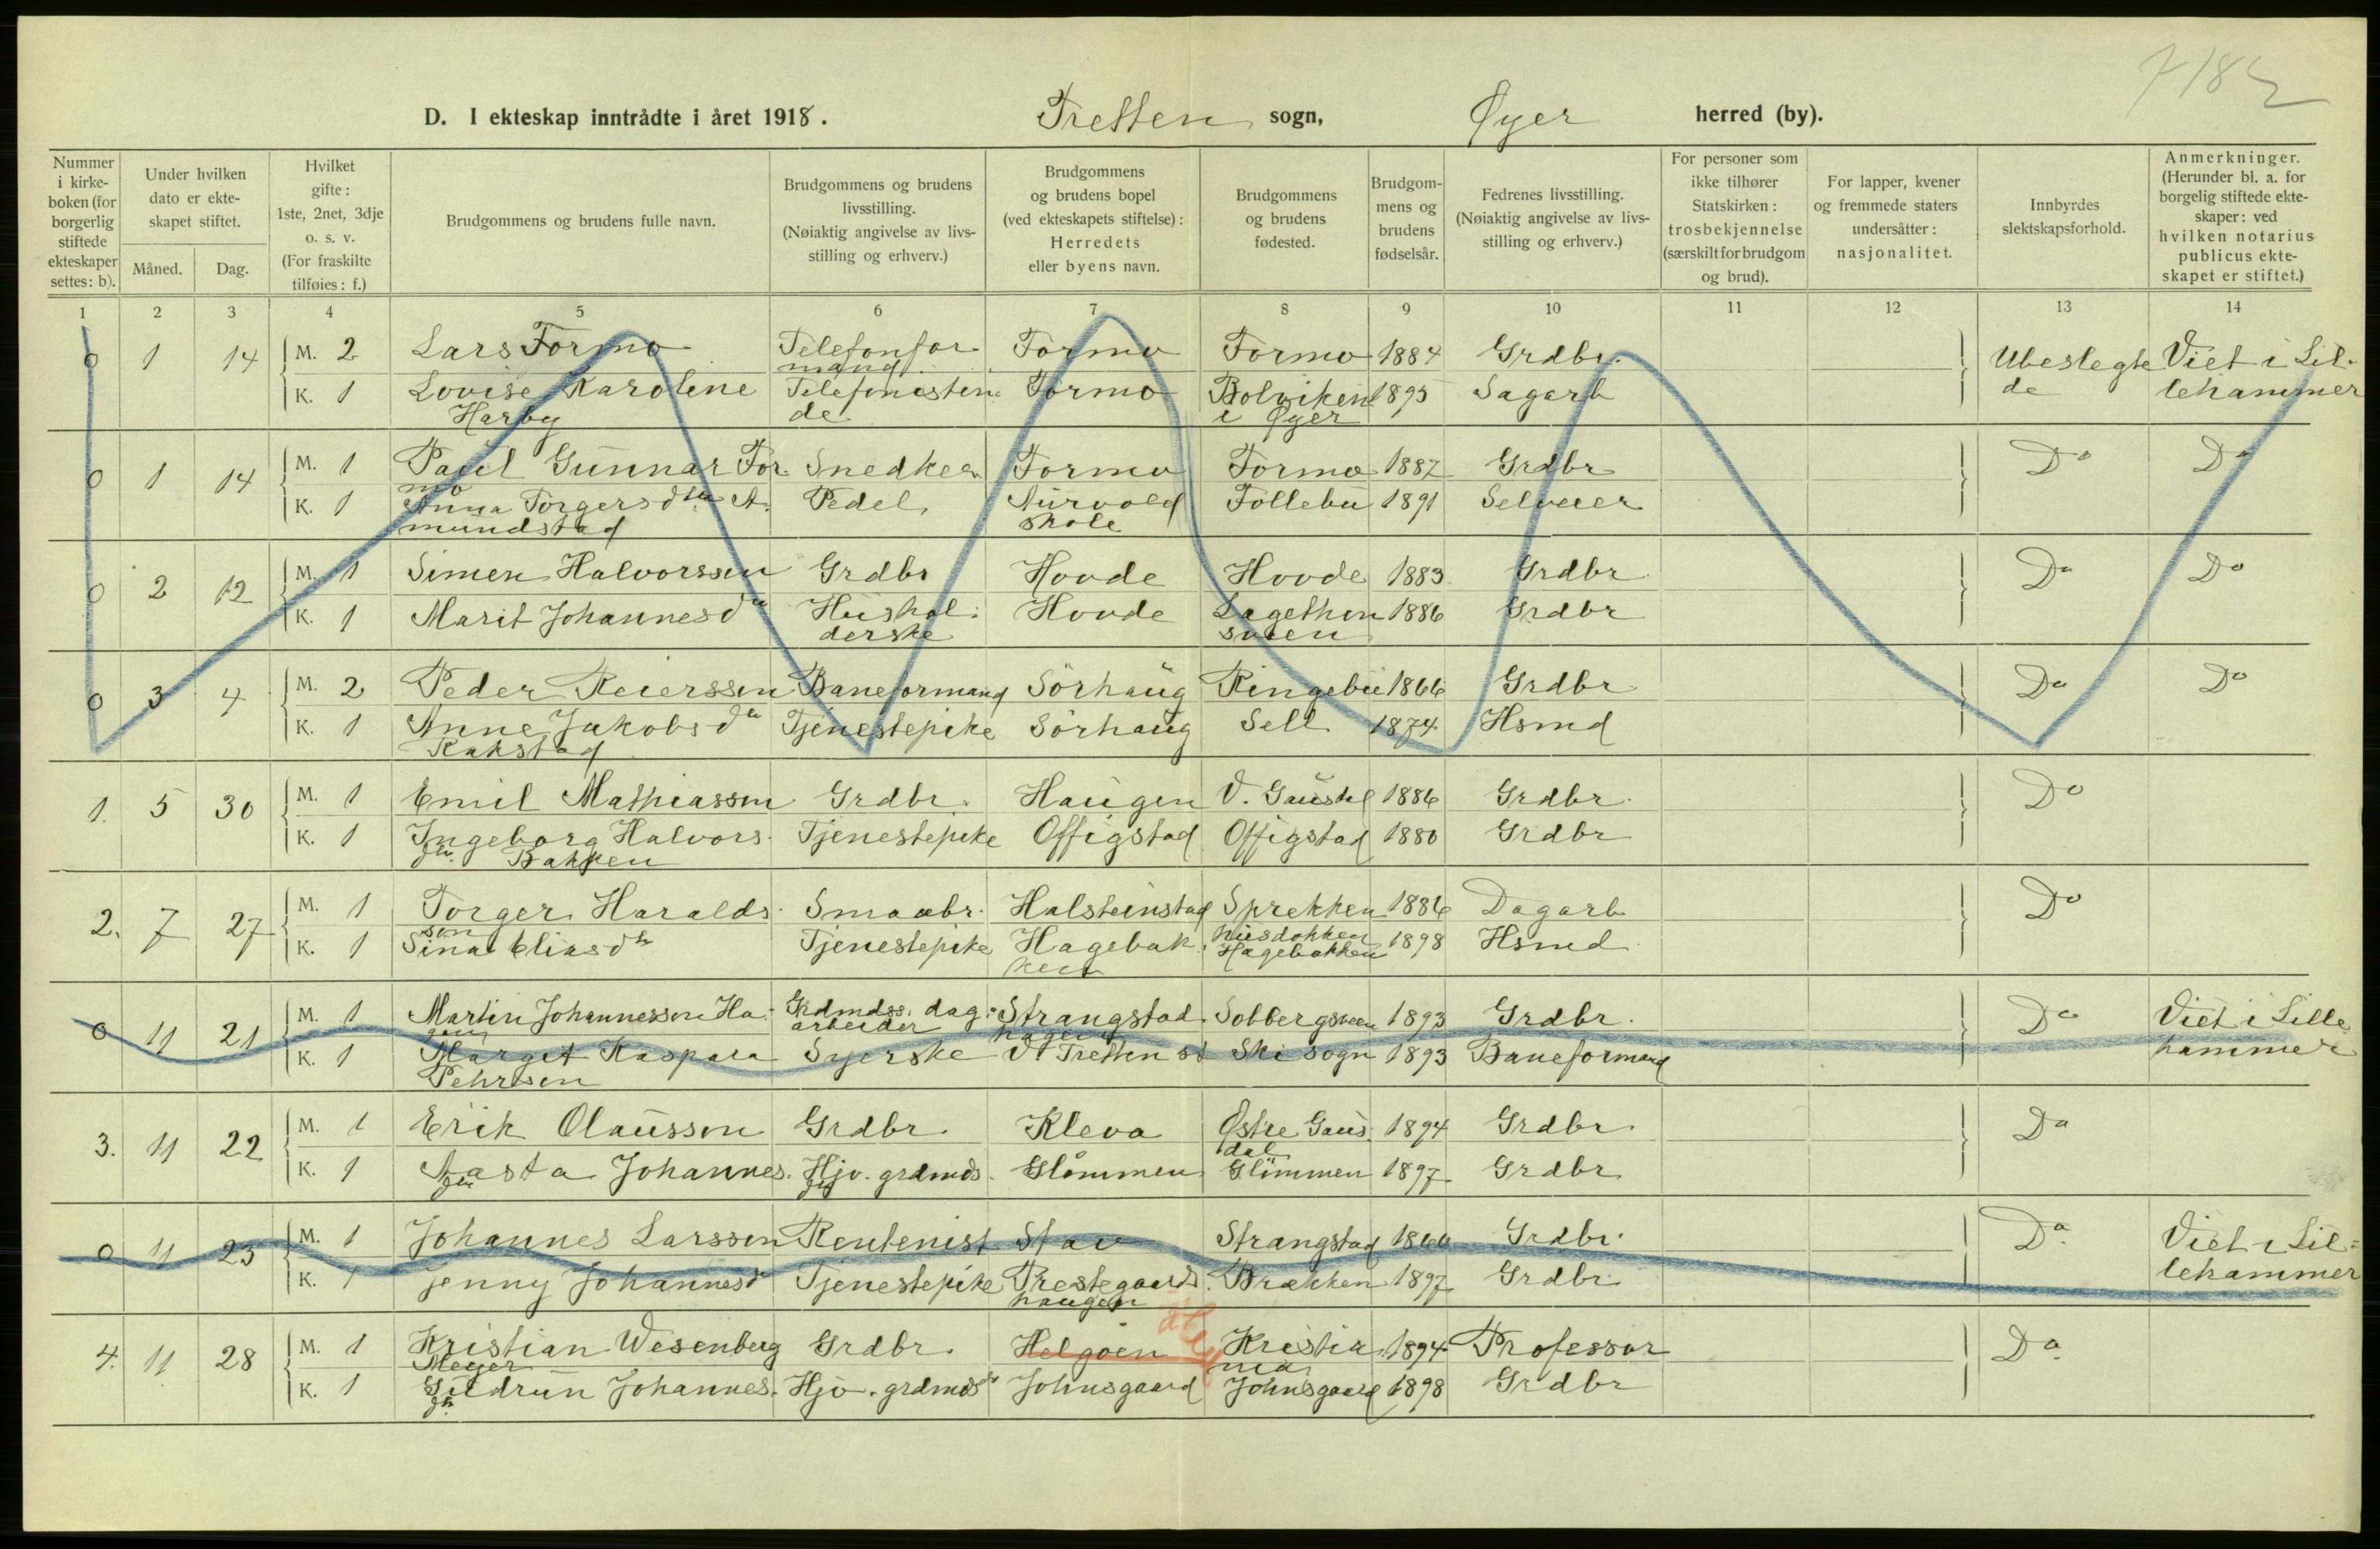 7182
D. I ekteskap inntrådte i året 1918. Tretten sogn, Øyer herred (by).
Nummer i kirkeboken (for borgerlig stiftede ekteskaper settes: b).
Under hvilken dato er ekteskapet stiftet.
Måned. Dag.
Hvilket gifte: 1ste, 2net, 3dje o. s. v. (For fraskilte tilføies: f.)
Brudgommens og brudens fulle navn.
Brudgommens og brudens livsstilling. (Nøiaktig angivelse av livsstilling og erhverv.)
Brudgommens og brudens bopel (ved ekteskapets stiftelse): Herredets eller byens navn.
Brudgommens og brudens fødested.
Brudgommens og brudens fødselsår.
Fedrenes livsstilling. (Nøiaktig angivelse av livsstilling og erhverv.)
For personer som ikke tilhører Statskirken: trosbekjennelse (særskilt for brudgom og brud).
For lapper, kvener og fremmede staters undersåtter: nasjonalitet.
Innbyrdes slektskapsforhold.
Anmerkninger. (Herunder bl. a. for borgelig stiftede ekteskaper: ved hvilken notarius publicus ekteskapet er stiftet.)
1 2 3 4 5 6 7 8 9 10 11 12 13 14
0 1 14 M. 2 Lars Formo Telefonformand Formo Formo 1884 Grdbr. Ubeslegtede Viet i Lillehammer
K. 1 Lovise Karoline Harby Telefonistinde Formo Bolviken i Øyer 1895 Sagarb
0 1 14 M. 1 Paul Gunnar Formo Snedker Formo Formo 1887 Grdbr Do Do
K. 1 Anna Torgersdtr. Amundstad Pedel Aurvold skole Follebu 1891 Selveier
0 2 12 M. 1 Simen Halvorssen Grdbr Hovde Hovde 1883 Grdbr Do Do
K. 1 Marit Johannesdtr Husholderske Hovde 1886 Grdbr
0 3 4 M. 2 Peder Reierssen Baneformand Sörhaug Ringebu 1866 Grdbr Do Do
K. 1 Anne Jakobsdtr Rakstad Tjenestepike Sörhaug Sell 1874 Hsmd
1. 5 30 M. 1 Emil Mathiassen Grdbr. Haugen V. Gausdal 1886 Grdbr. Do
K. 1 Ingeborg Halvorsdtr. Bakken Tjenestepike Offigstad Offigstad 1880 Grdbr
2. 7 27 M. 1 Torger Haraldssen Smaabr. Halsteinstad Sprekken 1886 Dagarb Do
K. 1 Sina Eliasdtr Tjenestepike Hagebakken Hagebakken 1898 Hsmd
0 11 21 M. 1 Martin Johannessen Hagen Grdmdss. dagarbeider Strangstadhagen Solbergsveen 1893 Grdbr. Do Viet i Lillehammer
K. 1 Margit Kaspara Pehrsen Syerske V Tretten st Ski sogn 1893 Baneformand
3. 11 22 M. 1 Erik Olaussen Grdbr. Kleva Østre Gausdal 1894 Grdbr. Do
K. 1 Aasta Johannesdtr Hjv. grdmdsdtr Glömmen Glömmen 1897 Grdbr
0 11 23 M. 1 Johannes Larssen Rentenist Stav Strangstad 1860 Grdbr. Do. Viet i Lillehammer
K. 1 Jenny Johannesdtr Tjenestepike Prestegaardshaugen Brækken 1897 Grdbr.
4. 11 28 M. 1 Kristian Wesenberg Meyer Grdbr. Helgöen Kristiania 1894 Professor Do.
K. 1 Gudrun Johannesdtr. Hjv. grdmdsdtr Johnsgaard Johnsgaard 1898 Grdbr